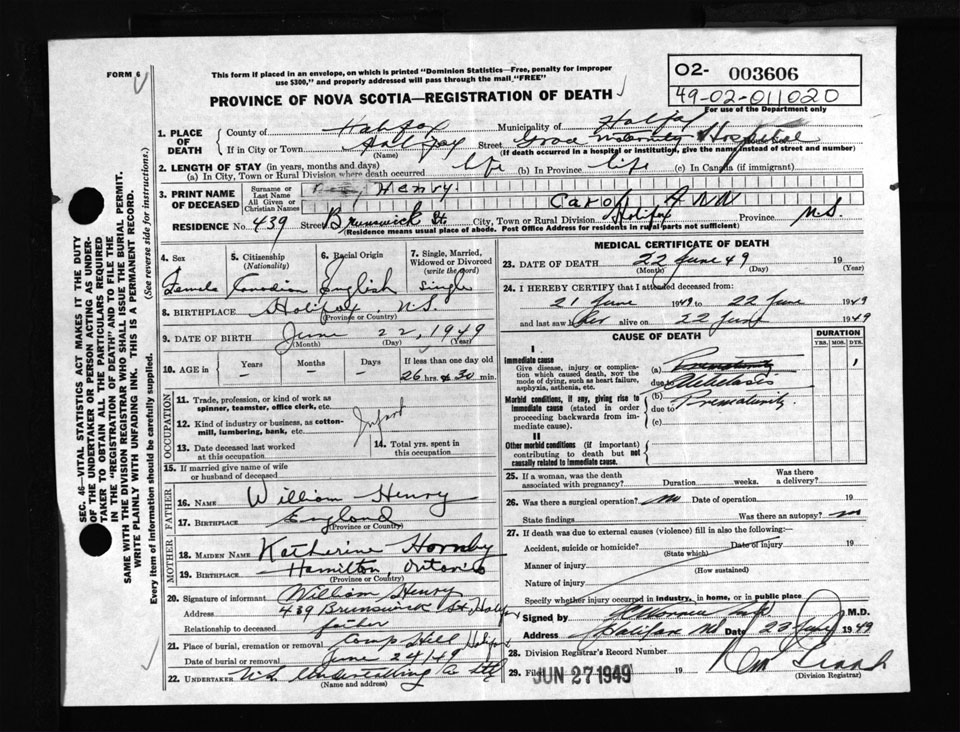 FORM 6
This form if placed in an envelope, on which is printed "Dominion Statistics—Free, penalty for improper
use $300," and properly addressed will pass through the mail "FREE"
PROVINCE OF NOVA SCOTIA—REGISTRATION OF DEATH
O2- 003606
49-02-011020
For use of the Department only
1. PLACE OF DEATH
County of Halifax Municipality of Halifax
If in City or Town Halifax Street Grace Maternity Hospital House No.
(Name) (If death occurred in a hospital or institution, give the name instead of street and number)
2. LENGTH OF STAY (in years, months and days)
(a) In City, Town or Rural Division where death occurred life (b) In Province life (c) In Canada (if immigrant)
3. PRINT NAME OF DECEASED
Surname or Last Name Henry.
All Given or Christian Names Carol Ann
RESIDENCE No. 439 Street Brunswick St. City, Town or Rural Division Halifax Province N.S.
(Residence means usual place of abode. Post Office Address for residents in rural parts not sufficient)
4. Sex Female
5. Citizenship (Nationality) Canadian
6. Racial Origin English
7. Single, Married, Widowed or Divorced (write the word) Single
8. BIRTHPLACE Halifax N.S.
(Province or Country)
9. DATE OF BIRTH June 22, 1949
(Month) (Day) (Year)
10. AGE in Years – Months – Days – If less than one day old 26 hrs. & 30 min.
OCCUPATION
11. Trade, profession, or kind of work as spinner, teamster, office clerk, etc.
12. Kind of industry or business, as cotton-mill, lumbering, bank, etc.
Infant
13. Date deceased last worked at this occupation
14. Total yrs. spent in this occupation
15. If married give name of wife or husband of deceased
FATHER
16. NAME William Henry
17. BIRTHPLACE England
(Province or Country)
MOTHER
18. MAIDEN NAME Katherine Hornby
19. BIRTHPLACE Hamilton, Ontario
(Province or Country)
20. Signature of informant William Henry
Address 439 Brunswick St., Halifax
Relationship to deceased father
21. Place of burial, cremation or removal Camp Hill Halifax
Date of burial or removal June 24 1949
22. UNDERTAKER N.S. Undertaking Co Ltd
(Name and address)
MEDICAL CERTIFICATE OF DEATH
23. DATE OF DEATH 22 June 49 19
(Month) (Day) (Year)
24. I HEREBY CERTIFY that I attended deceased from:
21 June 1949 to 22 June 1949
and last saw her alive on 22 June 1949
CAUSE OF DEATH
DURATION
YRS. MOS. DYS.
I
Immediate cause
Give disease, injury or complication which caused death, NOT the mode of dying, such as heart failure, asphyxia, asthenia, etc.
(a) Prematurity 1
due to Atelectasis
Morbid conditions, if any, giving rise to immediate cause (stated in order proceeding backwards from immediate cause).
(b)
due to Prematurity.
(c)
II
Other morbid conditions (if important) contributing to death but not causally related to immediate cause.
25. If a woman, was the death associated with pregnancy? Duration weeks. Was there a delivery?
26. Was there a surgical operation? no Date of operation 19
State findings Was there an autopsy? no
27. If death was due to external causes (violence) fill in also the following:—
Accident, suicide or homicide? Date of injury 19
(State which)
Manner of injury
(How sustained)
Nature of injury
Specify whether injury occurred in industry, in home, or in public place
Signed by M.D.
Address Halifax NS Date 23 June 1949
28. Division Registrar's Record Number
29. Filed JUN 27 1949 19
(Division Registrar)
SEC. 46—VITAL STATISTICS ACT MAKES IT THE DUTY
OF THE UNDERTAKER OR PERSON ACTING AS UNDER-
TAKER TO OBTAIN ALL THE PARTICULARS REQUIRED
IN THE "REGISTRATION OF DEATH" AND TO FILE THE
SAME WITH THE DIVISION REGISTRAR WHO SHALL ISSUE THE BURIAL PERMIT.
WRITE PLAINLY WITH UNFADING INK. THIS IS A PERMANENT RECORD.
Every item of information should be carefully supplied. (See reverse side for instructions.)